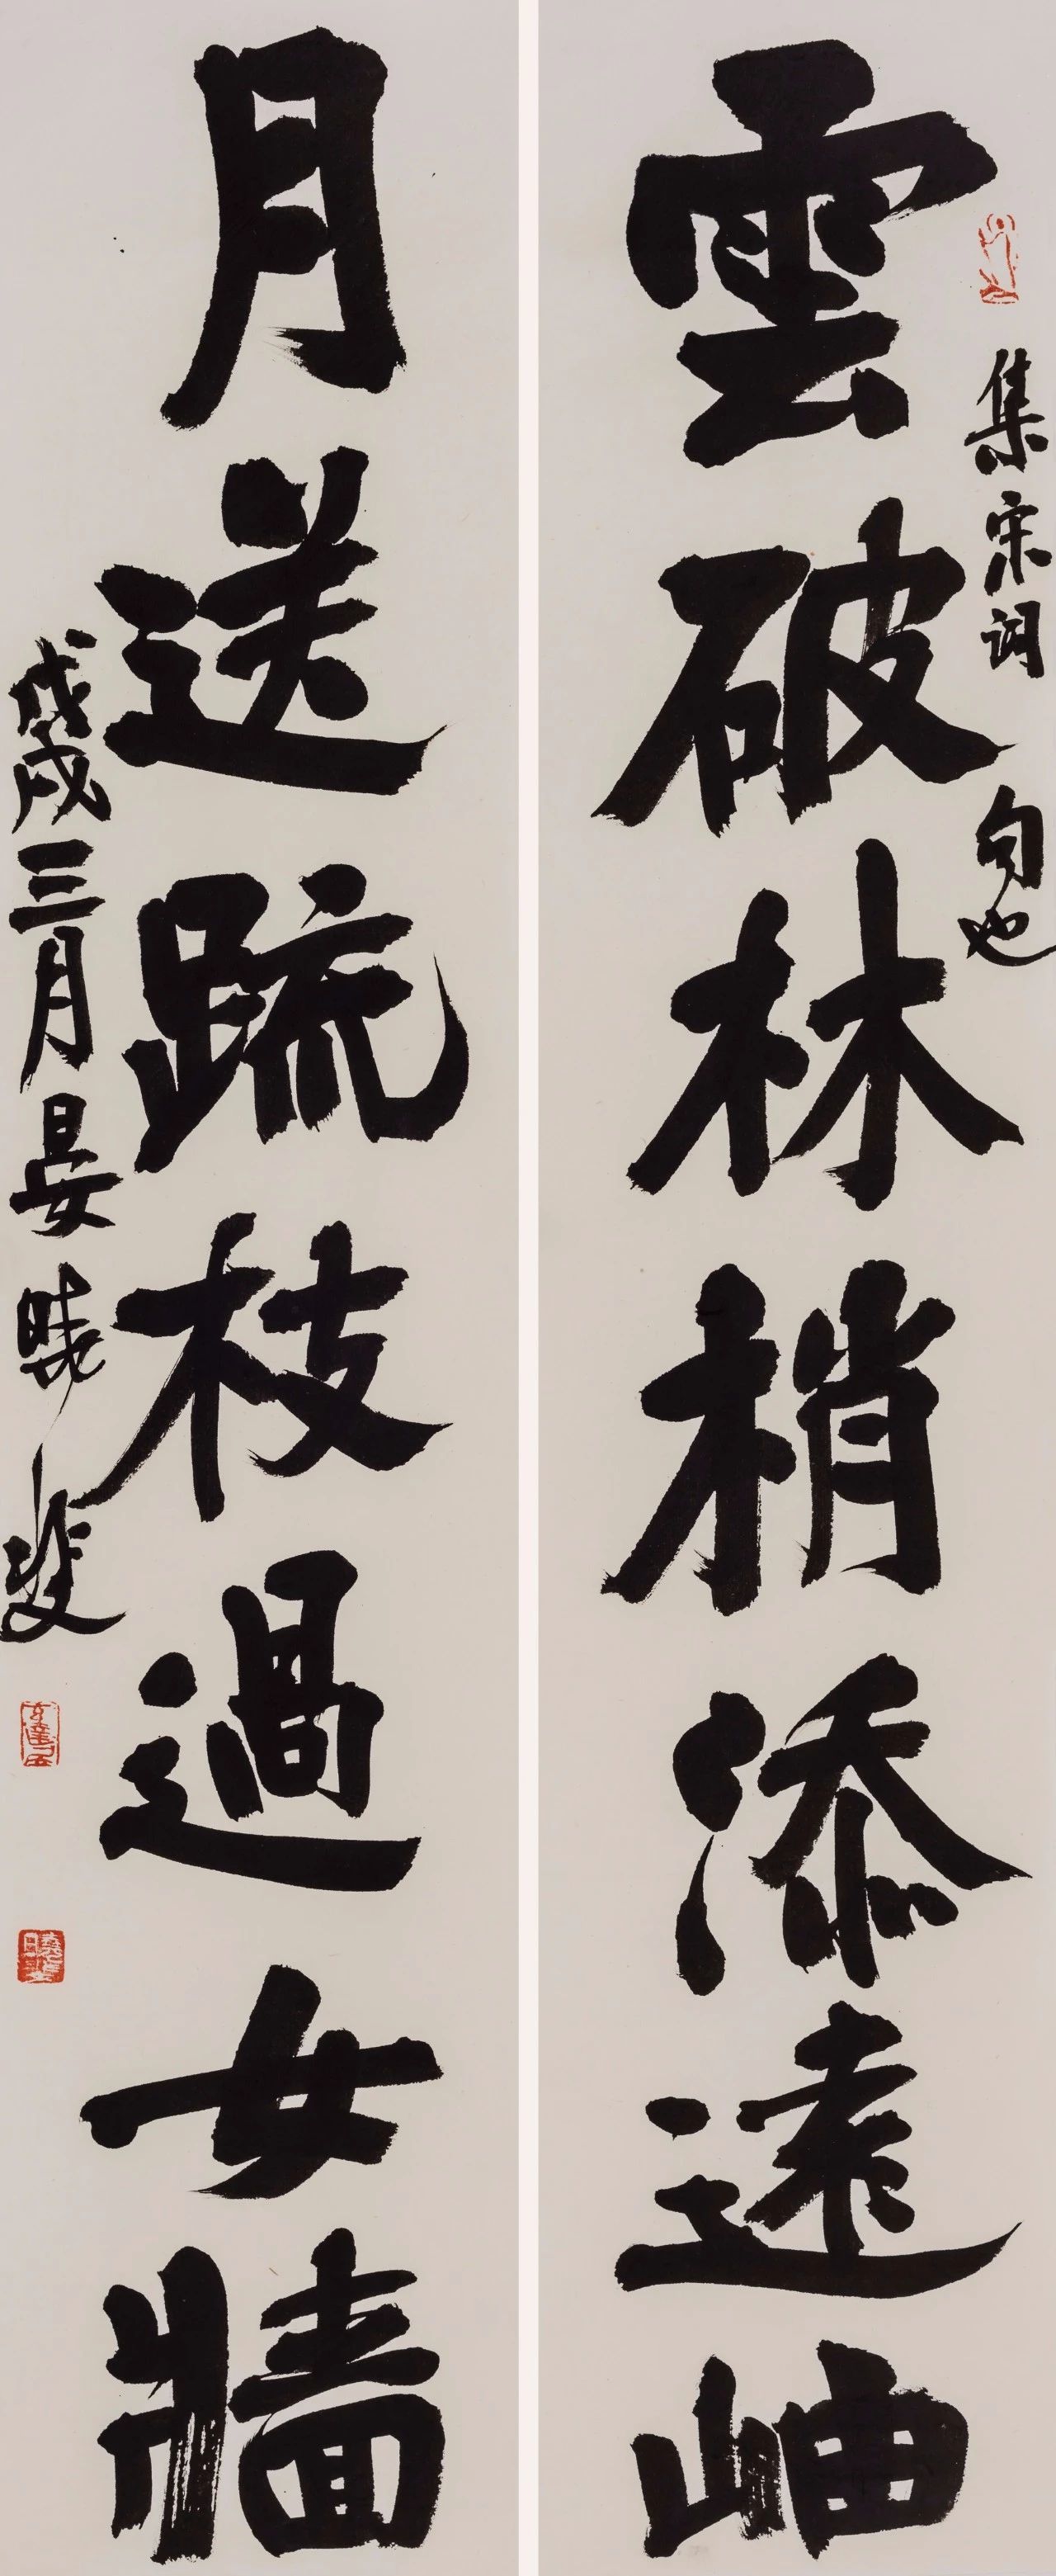 雲破林梢添遠岫
集宋詞句也
月送疏枝過女牆
戊戌三月晏曉斐